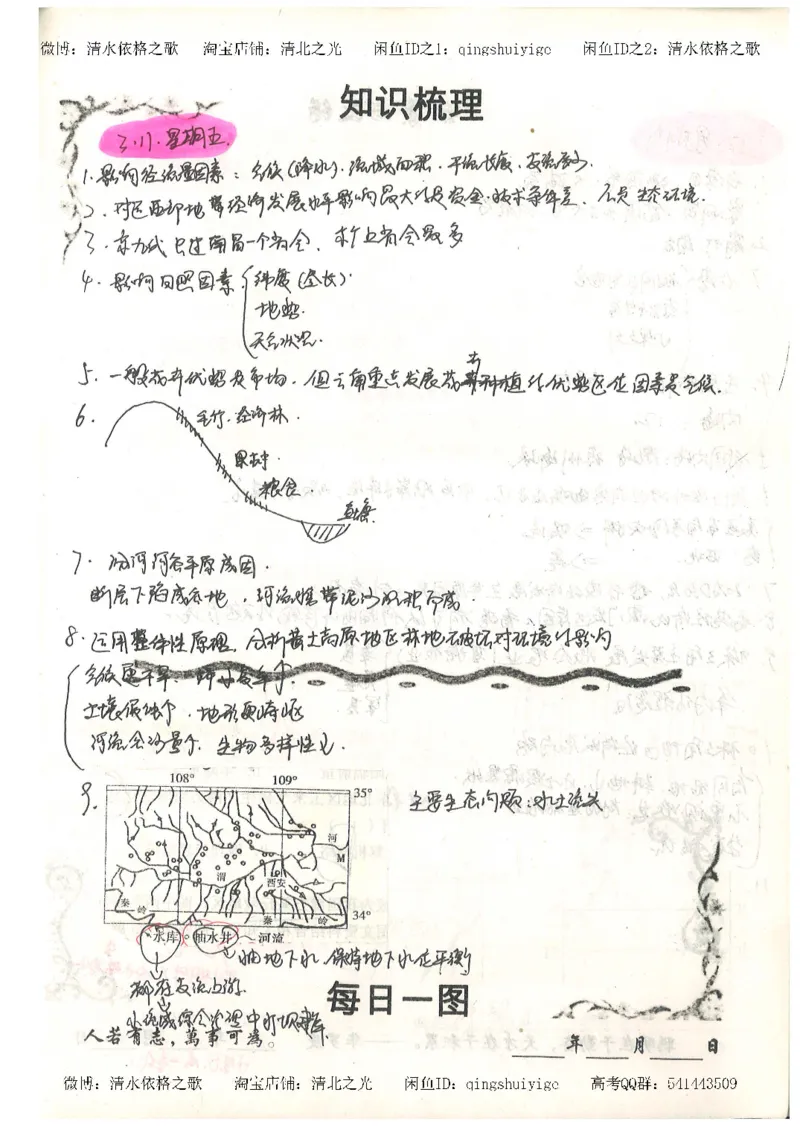 微博：清水依格之歌 淘宝店铺：清北之光 闲鱼ID之1：qingshuiyige 闲鱼ID之2：清水依格之歌
知识梳理
3.11.星期五.
1.影响径流量因素：气候(降水).流域面积.干流长度.支流多少.
2.对区西部地带经济发展水平影响最大的是资金.技术条件差、不是生态环境.
3.京九线只过南昌一个省会、京广上省会最多
4.影响日照因素 纬度(昼长).
地势.
天气状况.
5.一般花卉优势是市场.但云南重点发展花卉种植的优势区位因素是气候.
6.
毛竹.经济林.
果树.
粮食
鱼塘.
7.汾河河谷平原成因.
断层下陷成谷地，河流携带泥沙的积而成.
8.运用整体性原理，分析黄土高原地区林地破坏对环境的影响
气候更干旱.
土壤侵蚀↑.地形更崎岖
河流含沙量↑.生物多样性↓.
9.
108° 109°
35°
主要生态问题：水土流失
河
M
渭
西安
秦 岭
秦 岭
34°
水库 抽水井 河流
抽地下水，保持地下水位平衡
都在支流上游.
小流域综合治理中打坝建库.
每日一图
人若有志，萬事可為。
年 月 日
微博：清水依格之歌 淘宝店铺：清北之光 闲鱼ID：qingshuiyige 高考QQ群：541443509